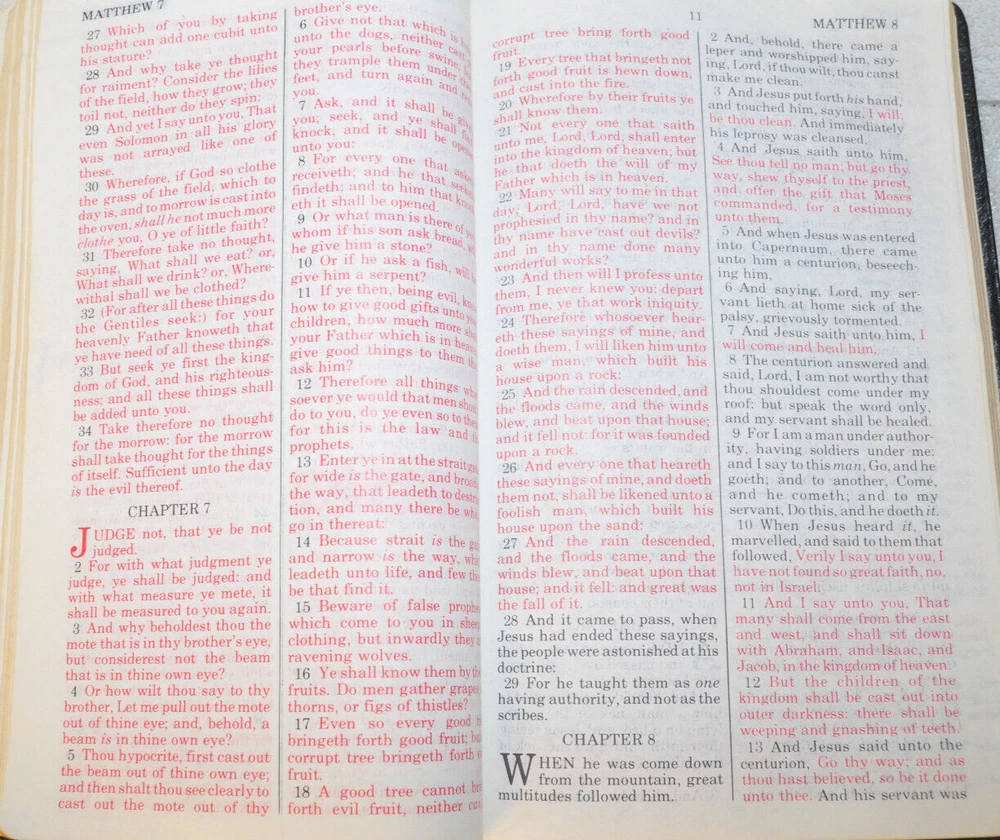 MATTHEW 7
27 Which of you by taking
thought can add one cubit unto
his stature?
28 And why take ye thought
for raiment? Consider the lilies
of the field, how they grow; they
toil not, neither do they spin:
29 And yet I say unto you, That
even Solomon in all his glory
was not arrayed like one of
these.
30 Wherefore, if God so clothe
the grass of the field, which to
day is, and to morrow is cast into
the oven, shall he not much more
clothe you, O ye of little faith?
31 Therefore take no thought,
saying, What shall we eat? or,
What shall we drink? or, Where-
withal shall we be clothed?
32 (For after all these things do
the Gentiles seek:) for your
heavenly Father knoweth that
ye have need of all these things.
33 But seek ye first the king-
dom of God, and his righteous-
ness; and all these things shall
be added unto you.
34 Take therefore no thought
for the morrow: for the morrow
shall take thought for the things
of itself. Sufficient unto the day
is the evil thereof.
CHAPTER 7
JUDGE not, that ye be not
judged.
2 For with what judgment ye
judge, ye shall be judged: and
with what measure ye mete, it
shall be measured to you again.
3 And why beholdest thou the
mote that is in thy brother's eye,
but considerest not the beam
that is in thine own eye?
4 Or how wilt thou say to thy
brother, Let me pull out the mote
out of thine eye; and, behold, a
beam is in thine own eye?
5 Thou hypocrite, first cast out
the beam out of thine own eye;
and then shalt thou see clearly to
cast out the mote out of thy
brother's eye.
6 Give not that which is
unto the dogs, neither
your pearls before swine,
they trample them under
feet, and turn again and
you.
7 Ask, and it shall be
you; seek, and ye shall
knock, and it shall be
unto you:
8 For every one that
receiveth; and he that
findeth; and to him that
eth it shall be opened.
9 Or what man is there of
whom if his son ask bread,
he give him a stone?
10 Or if he ask a fish,
give him a serpent?
11 If ye then, being evil,
how to give good gifts unto
children, how much more
your Father which is in
give good things to them
ask him?
12 Therefore all things
soever ye would that men
do to you, do ye even so to
for this is the law and
prophets.
13 Enter ye in at the strait
for wide is the gate, and
the way, that leadeth to
tion, and many there be
go in thereat:
14 Because strait is the
and narrow is the way,
leadeth unto life, and few
be that find it.
15 Beware of false
which come to you in
clothing, but inwardly they
ravening wolves.
16 Ye shall know them by
fruits. Do men gather
thorns, or figs of thistles?
17 Even so every good
bringeth forth good fruit;
corrupt tree bringeth forth
fruit.
18 A good tree cannot
forth evil fruit, neither
11
MATTHEW 8
corrupt tree bring forth good
fruit.
19 Every tree that bringeth not
forth good fruit is hewn down,
and cast into the fire.
20 Wherefore by their fruits ye
shall know them.
21 Not every one that saith
unto me, Lord, Lord, shall enter
into the kingdom of heaven; but
he that doeth the will of my
Father which is in heaven.
22 Many will say to me in that
day, Lord, Lord, have we not
prophesied in thy name? and in
thy name have cast out devils?
and in thy name done many
wonderful works?
23 And then will I profess unto
them, I never knew you: depart
from me, ye that work iniquity.
24 Therefore whosoever hear-
eth these sayings of mine, and
doeth them, I will liken him unto
a wise man, which built his
house upon a rock:
25 And the rain descended, and
the floods came, and the winds
blew, and beat upon that house;
and it fell not: for it was founded
upon a rock.
26 And every one that heareth
these sayings of mine, and doeth
them not, shall be likened unto a
foolish man, which built his
house upon the sand:
27 And the rain descended,
and the floods came, and the
winds blew, and beat upon that
house; and it fell: and great was
the fall of it.
28 And it came to pass, when
Jesus had ended these sayings,
the people were astonished at his
doctrine:
29 For he taught them as one
having authority, and not as the
scribes.
CHAPTER 8
WHEN he was come down
from the mountain, great
multitudes followed him.
2 And, behold, there came a
leper and worshipped him, say-
ing, Lord, if thou wilt, thou canst
make me clean.
3 And Jesus put forth his hand,
and touched him, saying, I will;
be thou clean. And immediately
his leprosy was cleansed.
4 And Jesus saith unto him,
See thou tell no man; but go thy
way, shew thyself to the priest,
and offer the gift that Moses
commanded, for a testimony
unto them.
5 And when Jesus was entered
into Capernaum, there came
unto him a centurion, beseech-
ing him,
6 And saying, Lord, my ser-
vant lieth at home sick of the
palsy, grievously tormented.
7 And Jesus saith unto him, I
will come and heal him.
8 The centurion answered and
said, Lord, I am not worthy that
thou shouldest come under my
roof: but speak the word only,
and my servant shall be healed.
9 For I am a man under author-
ity, having soldiers under me:
and I say to this man, Go, and he
goeth; and to another, Come,
and he cometh; and to my
servant, Do this, and he doeth it.
10 When Jesus heard it, he
marvelled, and said to them that
followed, Verily I say unto you, I
have not found so great faith, no,
not in Israel.
11 And I say unto you, That
many shall come from the east
and west, and shall sit down
with Abraham, and Isaac, and
Jacob, in the kingdom of heaven.
12 But the children of the
kingdom shall be cast out into
outer darkness: there shall be
weeping and gnashing of teeth.
13 And Jesus said unto the
centurion, Go thy way; and as
thou hast believed, so be it done
unto thee. And his servant was